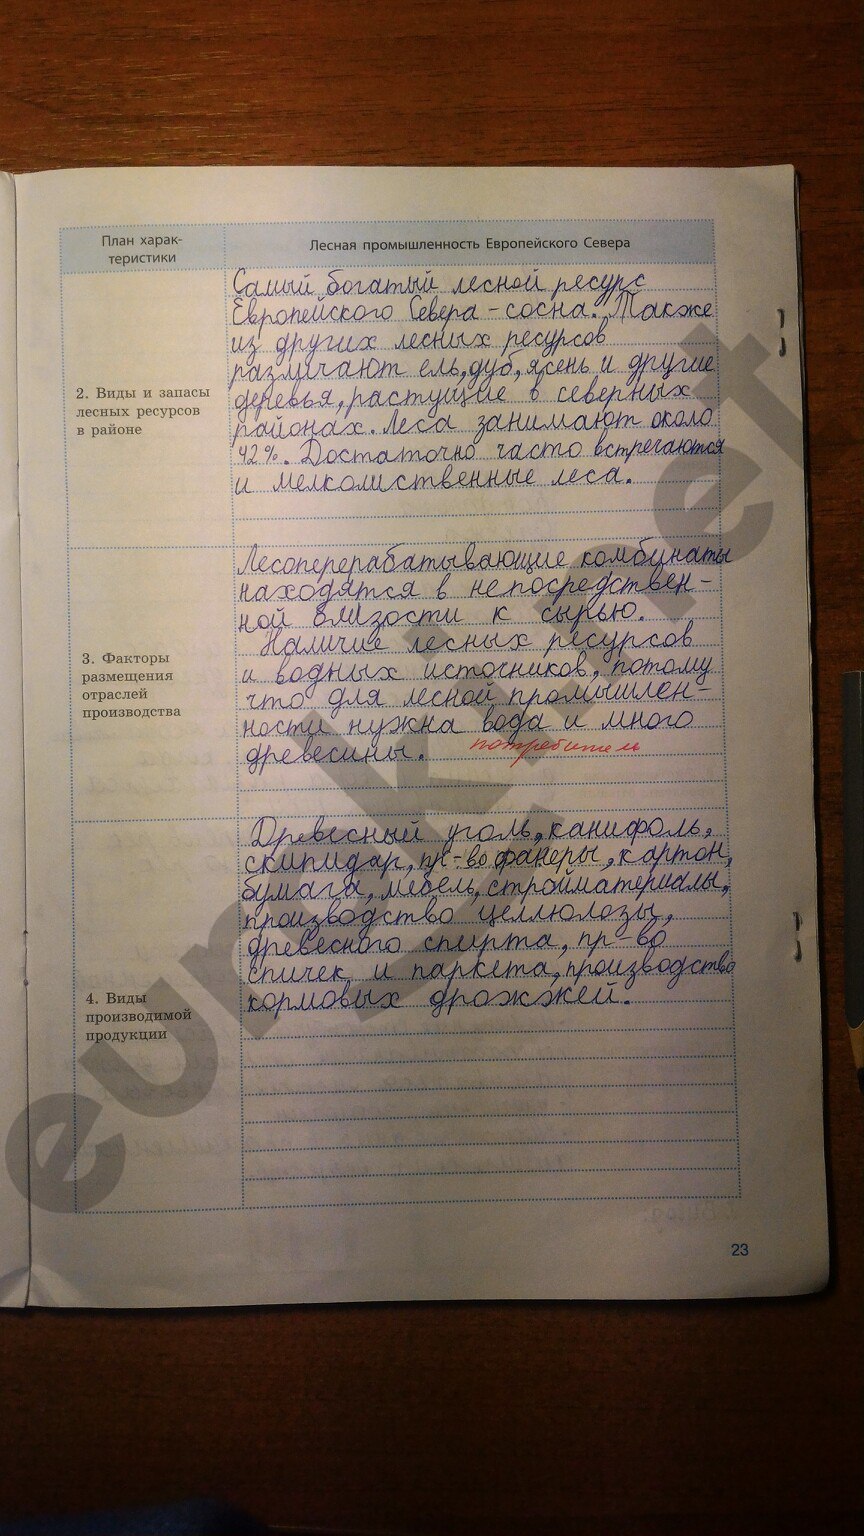 План харак-
теристики
Лесная промышленность Европейского Севера
2. Виды и запасы
лесных ресурсов
в районе
Самый богатый лесной ресурс
Европейского Севера - сосна. Также
из других лесных ресурсов
различают ель, дуб, ясень и другие
деревья, растущие в северных
районах. Леса занимают около
42%. Достаточно часто встречаются
и мелколиственные леса.
3. Факторы
размещения
отраслей
производства
Лесоперерабатывающие комбинаты
находятся в непосредствен-
ной близости к сырью.
Наличие лесных ресурсов
и водных источников, потому
что для лесной промышлен-
ности нужна вода и много
древесины. потребитель
4. Виды
производимой
продукции
Древесный уголь, канифоль,
скипидар, пр-во фанеры, картон,
бумага, мебель, стройматериалы,
производство целлюлозы,
древесного спирта, пр-во
спичек и паркета, производство
кормовых дрожжей.
23
euroki.net